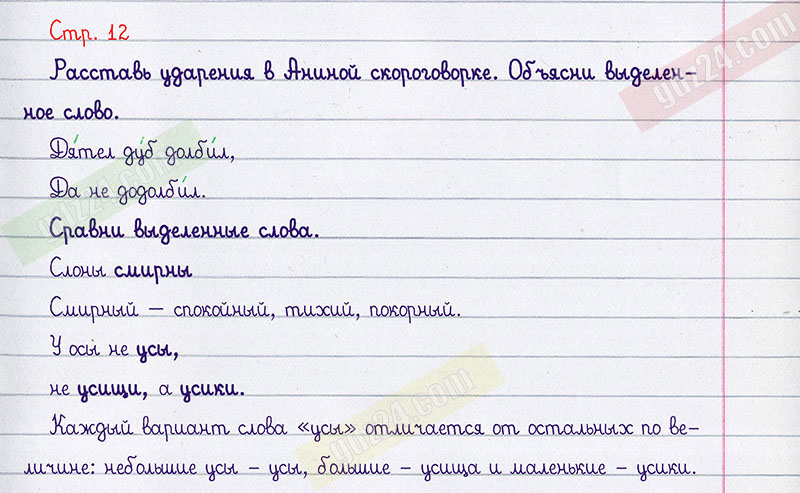 Стр. 12
Расставь ударения в Аниной скороговорке. Объясни выделен-
ное слово.
Дя́тел ду́б долби́л,
Да не додолби́л.
Сравни выделенные слова.
Слоны смирны
Смирный – спокойный, тихий, покорный.
У осы не усы,
не усищи, а усики.
Каждый вариант слова «усы» отличается от остальных по ве-
личине: небольшие усы – усы, большие – усища и маленькие – усики.
guz24.com
guz24.com
guz24.com